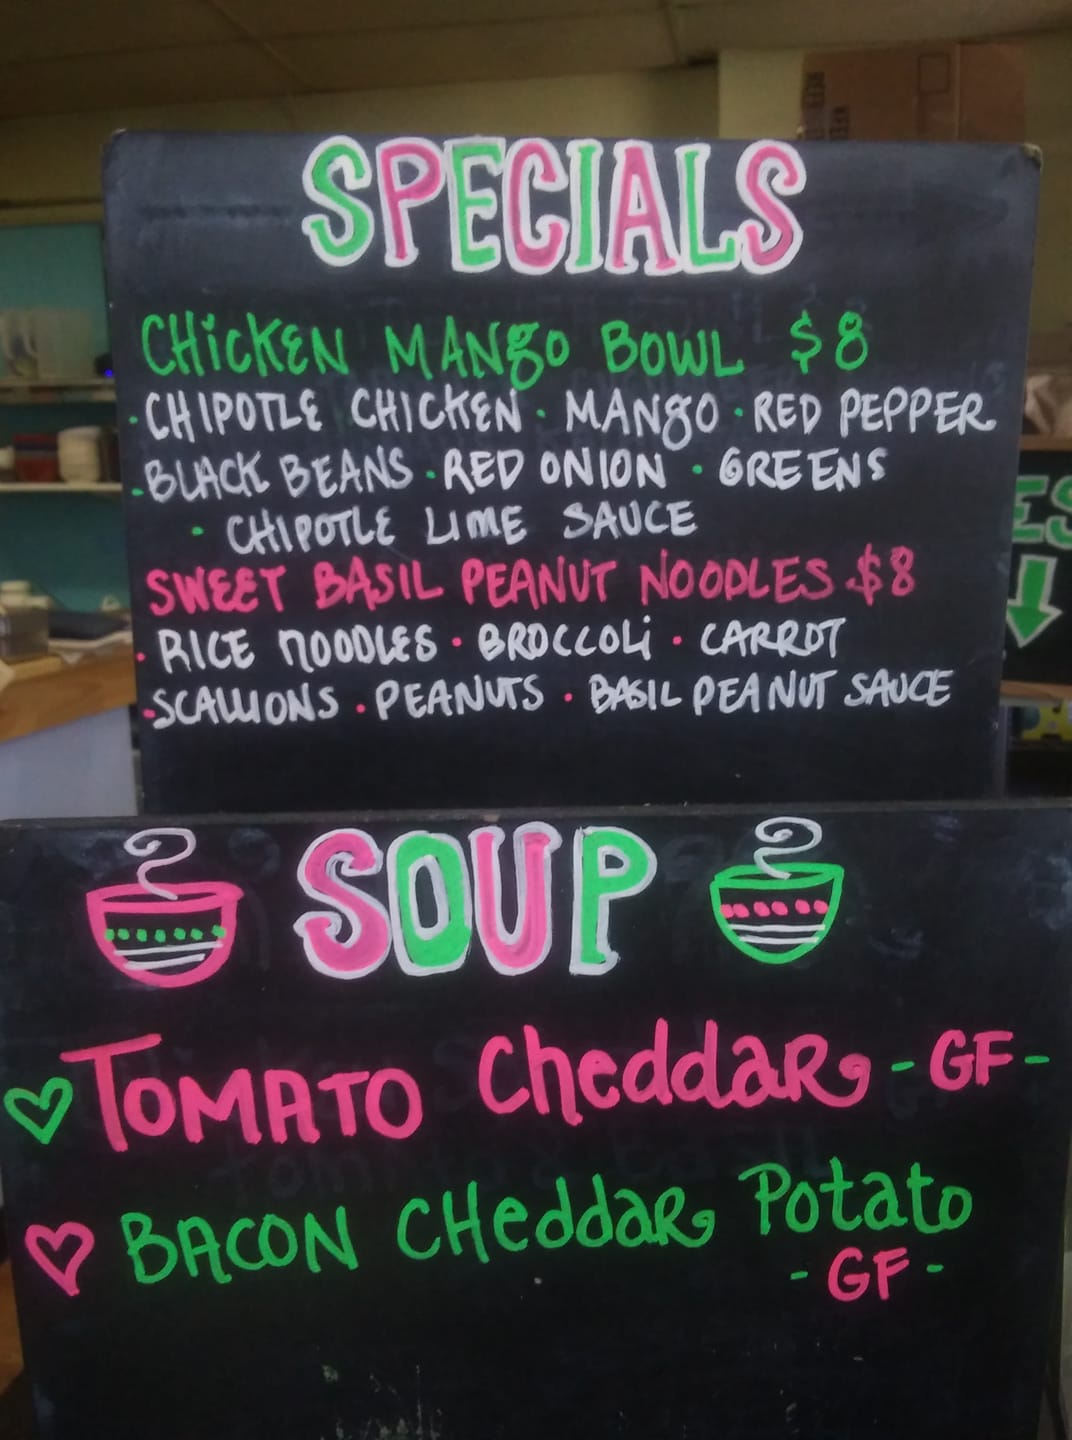 SPECIALS
CHiCKEN MANgo BOWL $8
· CHIPOTLE CHICKEN · MANgO · RED PEPPER
· BLACK BEANS · RED ONION · GREENS
· CHIPOTLE LIME SAUCE
SWEET BASIL PEANUT NOODLES $8
· RICE NOODLES · BROCCOLi · CARROT
· SCALLIONS · PEANUTS · BASIL PEANUT SAUCE
ES
SOUP
TOMATO CheddaR - GF -
BACON CHeddaR Potato
- GF -